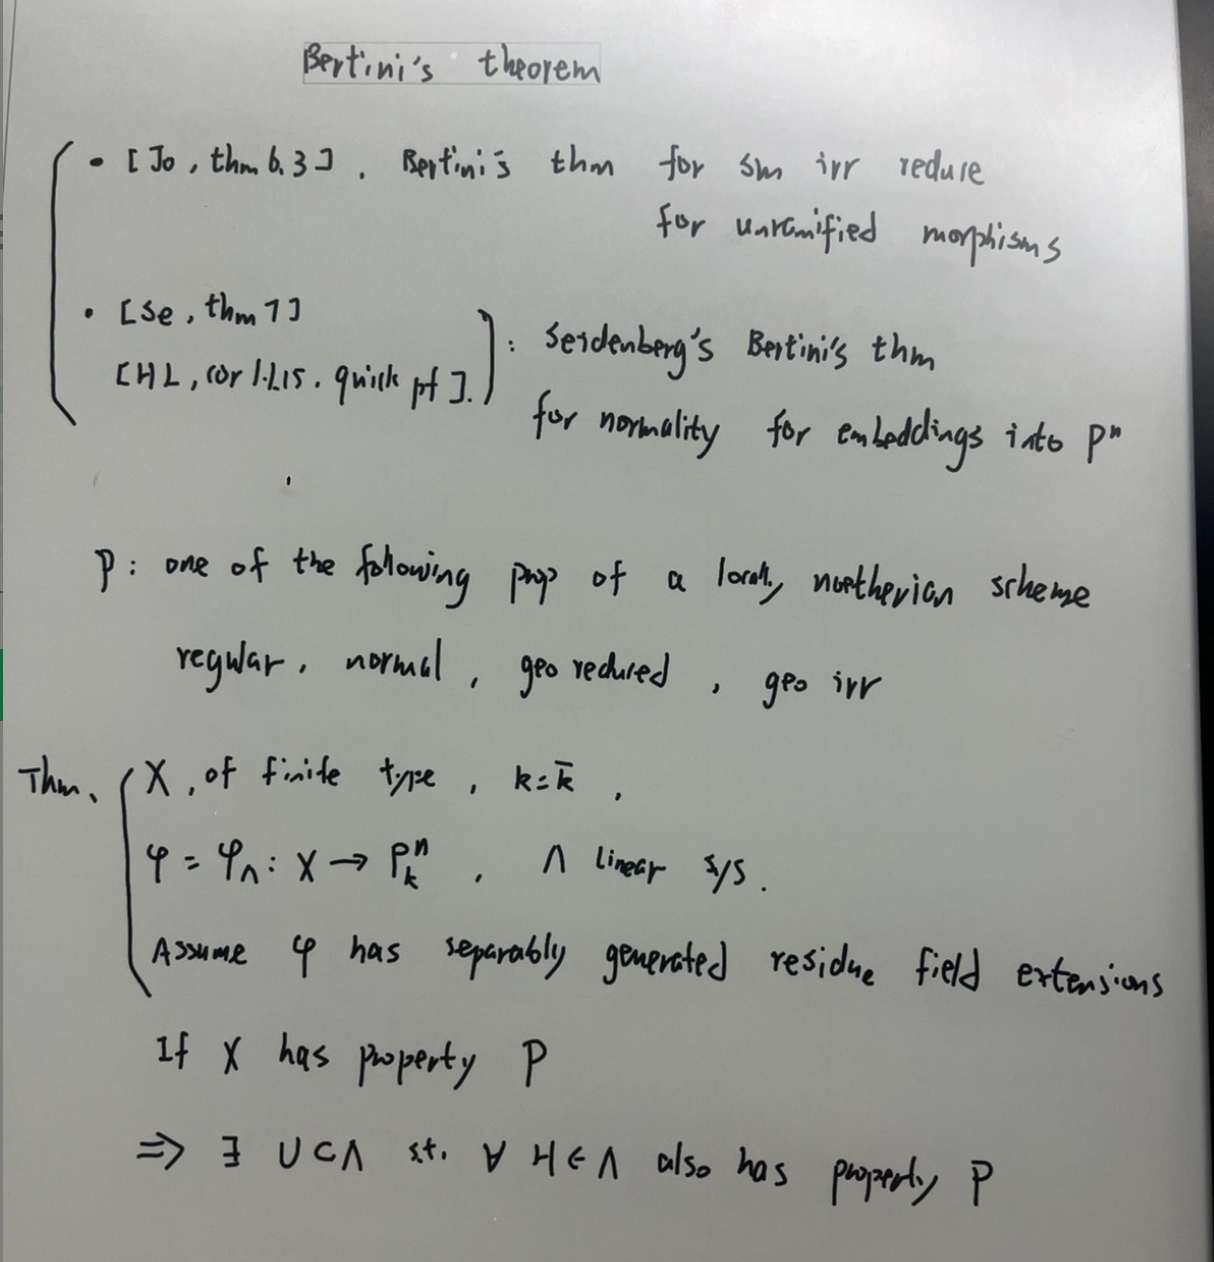 Bertini's theorem
• [Jo, thm 6.3]. Bertini's thm for sm irr reduce
for unramified morphisms
• [Se, thm 7]
[HL, cor 1.1.15. quick pf]. : Seidenberg's Bertini's thm
for normality for embeddings into Pⁿ
P: one of the following prop of a locally noetherian scheme
regular, normal, geo reduced, geo irr
Thm. X, of finite type, k=k̄,
φ = φ_Λ: X → P_k^n, Λ linear s/s.
Assume φ has separably generated residue field extensions
If X has property P
⇒ ∃ U⊂Λ s.t. ∀ H∈Λ also has property P